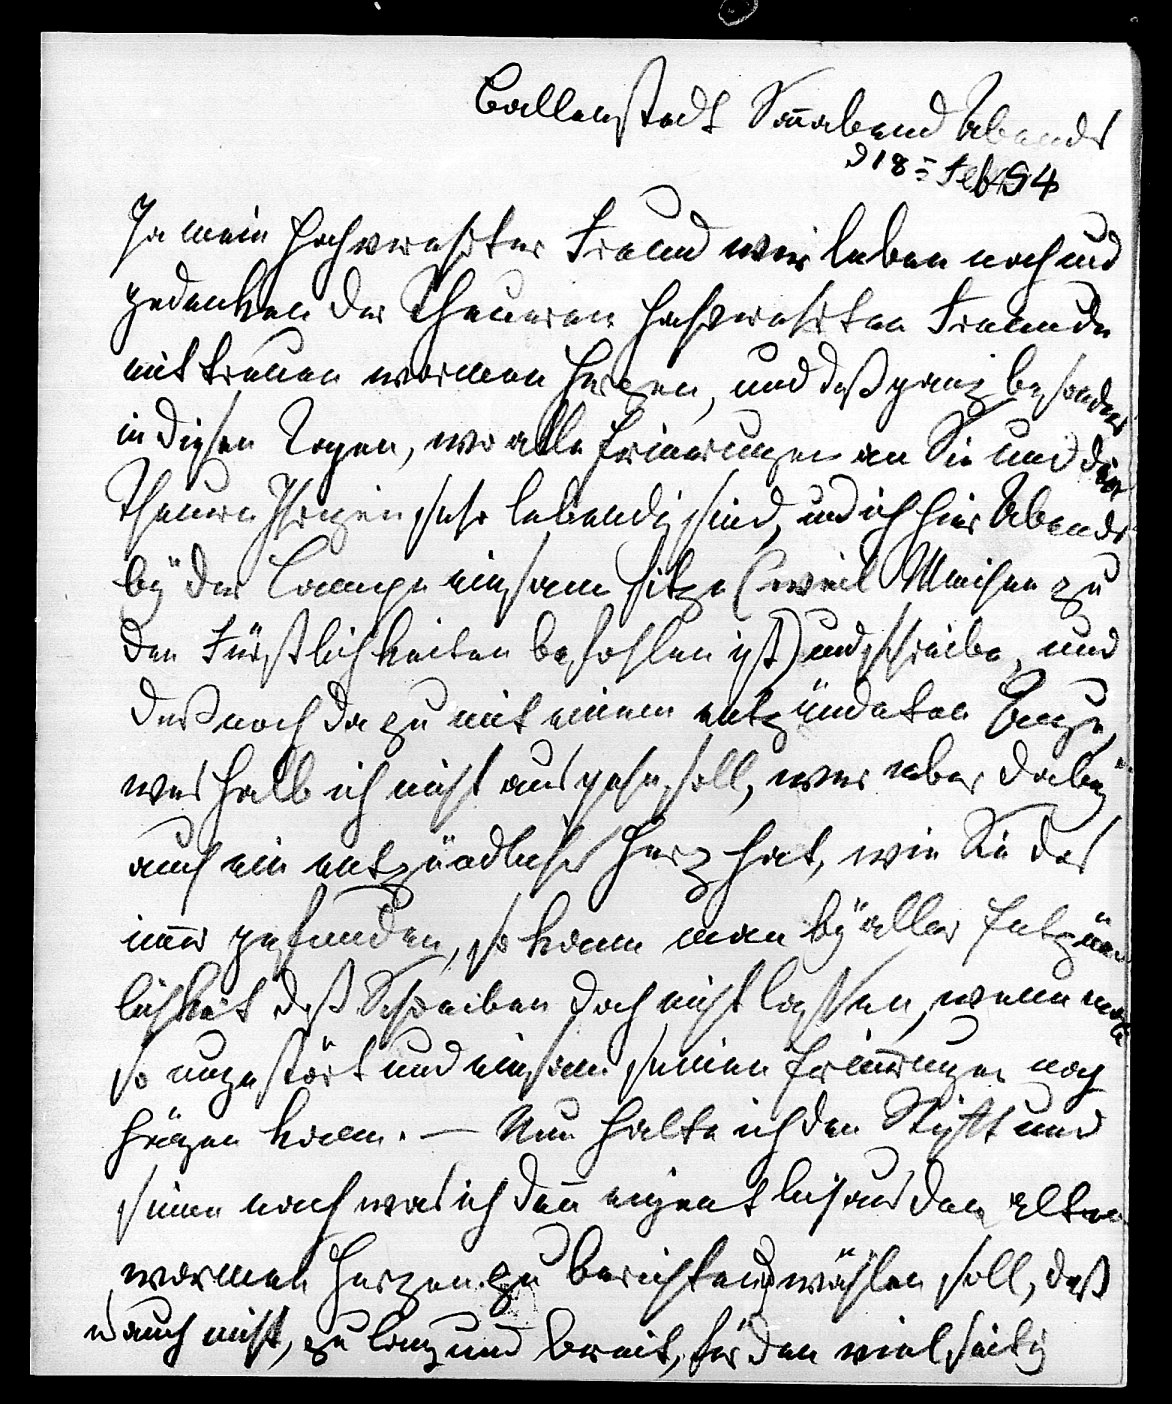 Ballenstedt Sonnabend Abends
d 18 = Feb 54
Ja mein hochverehrter Freund wir leben noch und
gedenken der Theueren hochverehrten Freunde
mit treuen warmen Herzen, und daß ganz besonders
in diesen Tagen, wo alle Erinnerungen an Sie und die
Theuren Ihrigen sehr lebendig sind, und ich hier Abends
bÿ der Lampe einsam sitze (weil zu
den Fürstlichkeiten befohlen ist) und schreibe, und
deß noch dazu mit einem entzündeten Auge,
weshalb ich nicht ausgehn soll, wer aber dabeÿ
auch ein entzündliches Herz hat, wie Sie das
imer gefunden, so kann man bÿ aller Entzünd
lichkeit deß Schreiben doch nicht lassen, wenn man
so ungestört und einsam seinen Erinerungen nach
hängen kann. — Nun halte ich den Stift und
sinne nach was ich den eigentlich aus den alten
warmen Herzen zu berichten wählen soll, daß
es auch nicht, zu lang und breit, für den vielseitig